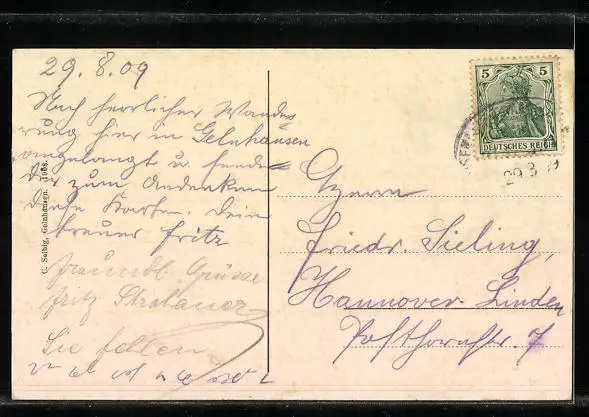 29.8.09
Nach herrlicher Wande
rung hier in Gelnhausen
angelangt u. sende
Dir zum Andenken
diese Karte. Dein
treuer Fritz
freundl. Grüsse
Fritz
Sie fehlen
C. Seibig, Gelnhausen. 1908.
5 5
DEUTSCHES REICH
29.8
Herrn
Friedr. Sieling,
Hannover-Linden
Posthornstr. 7